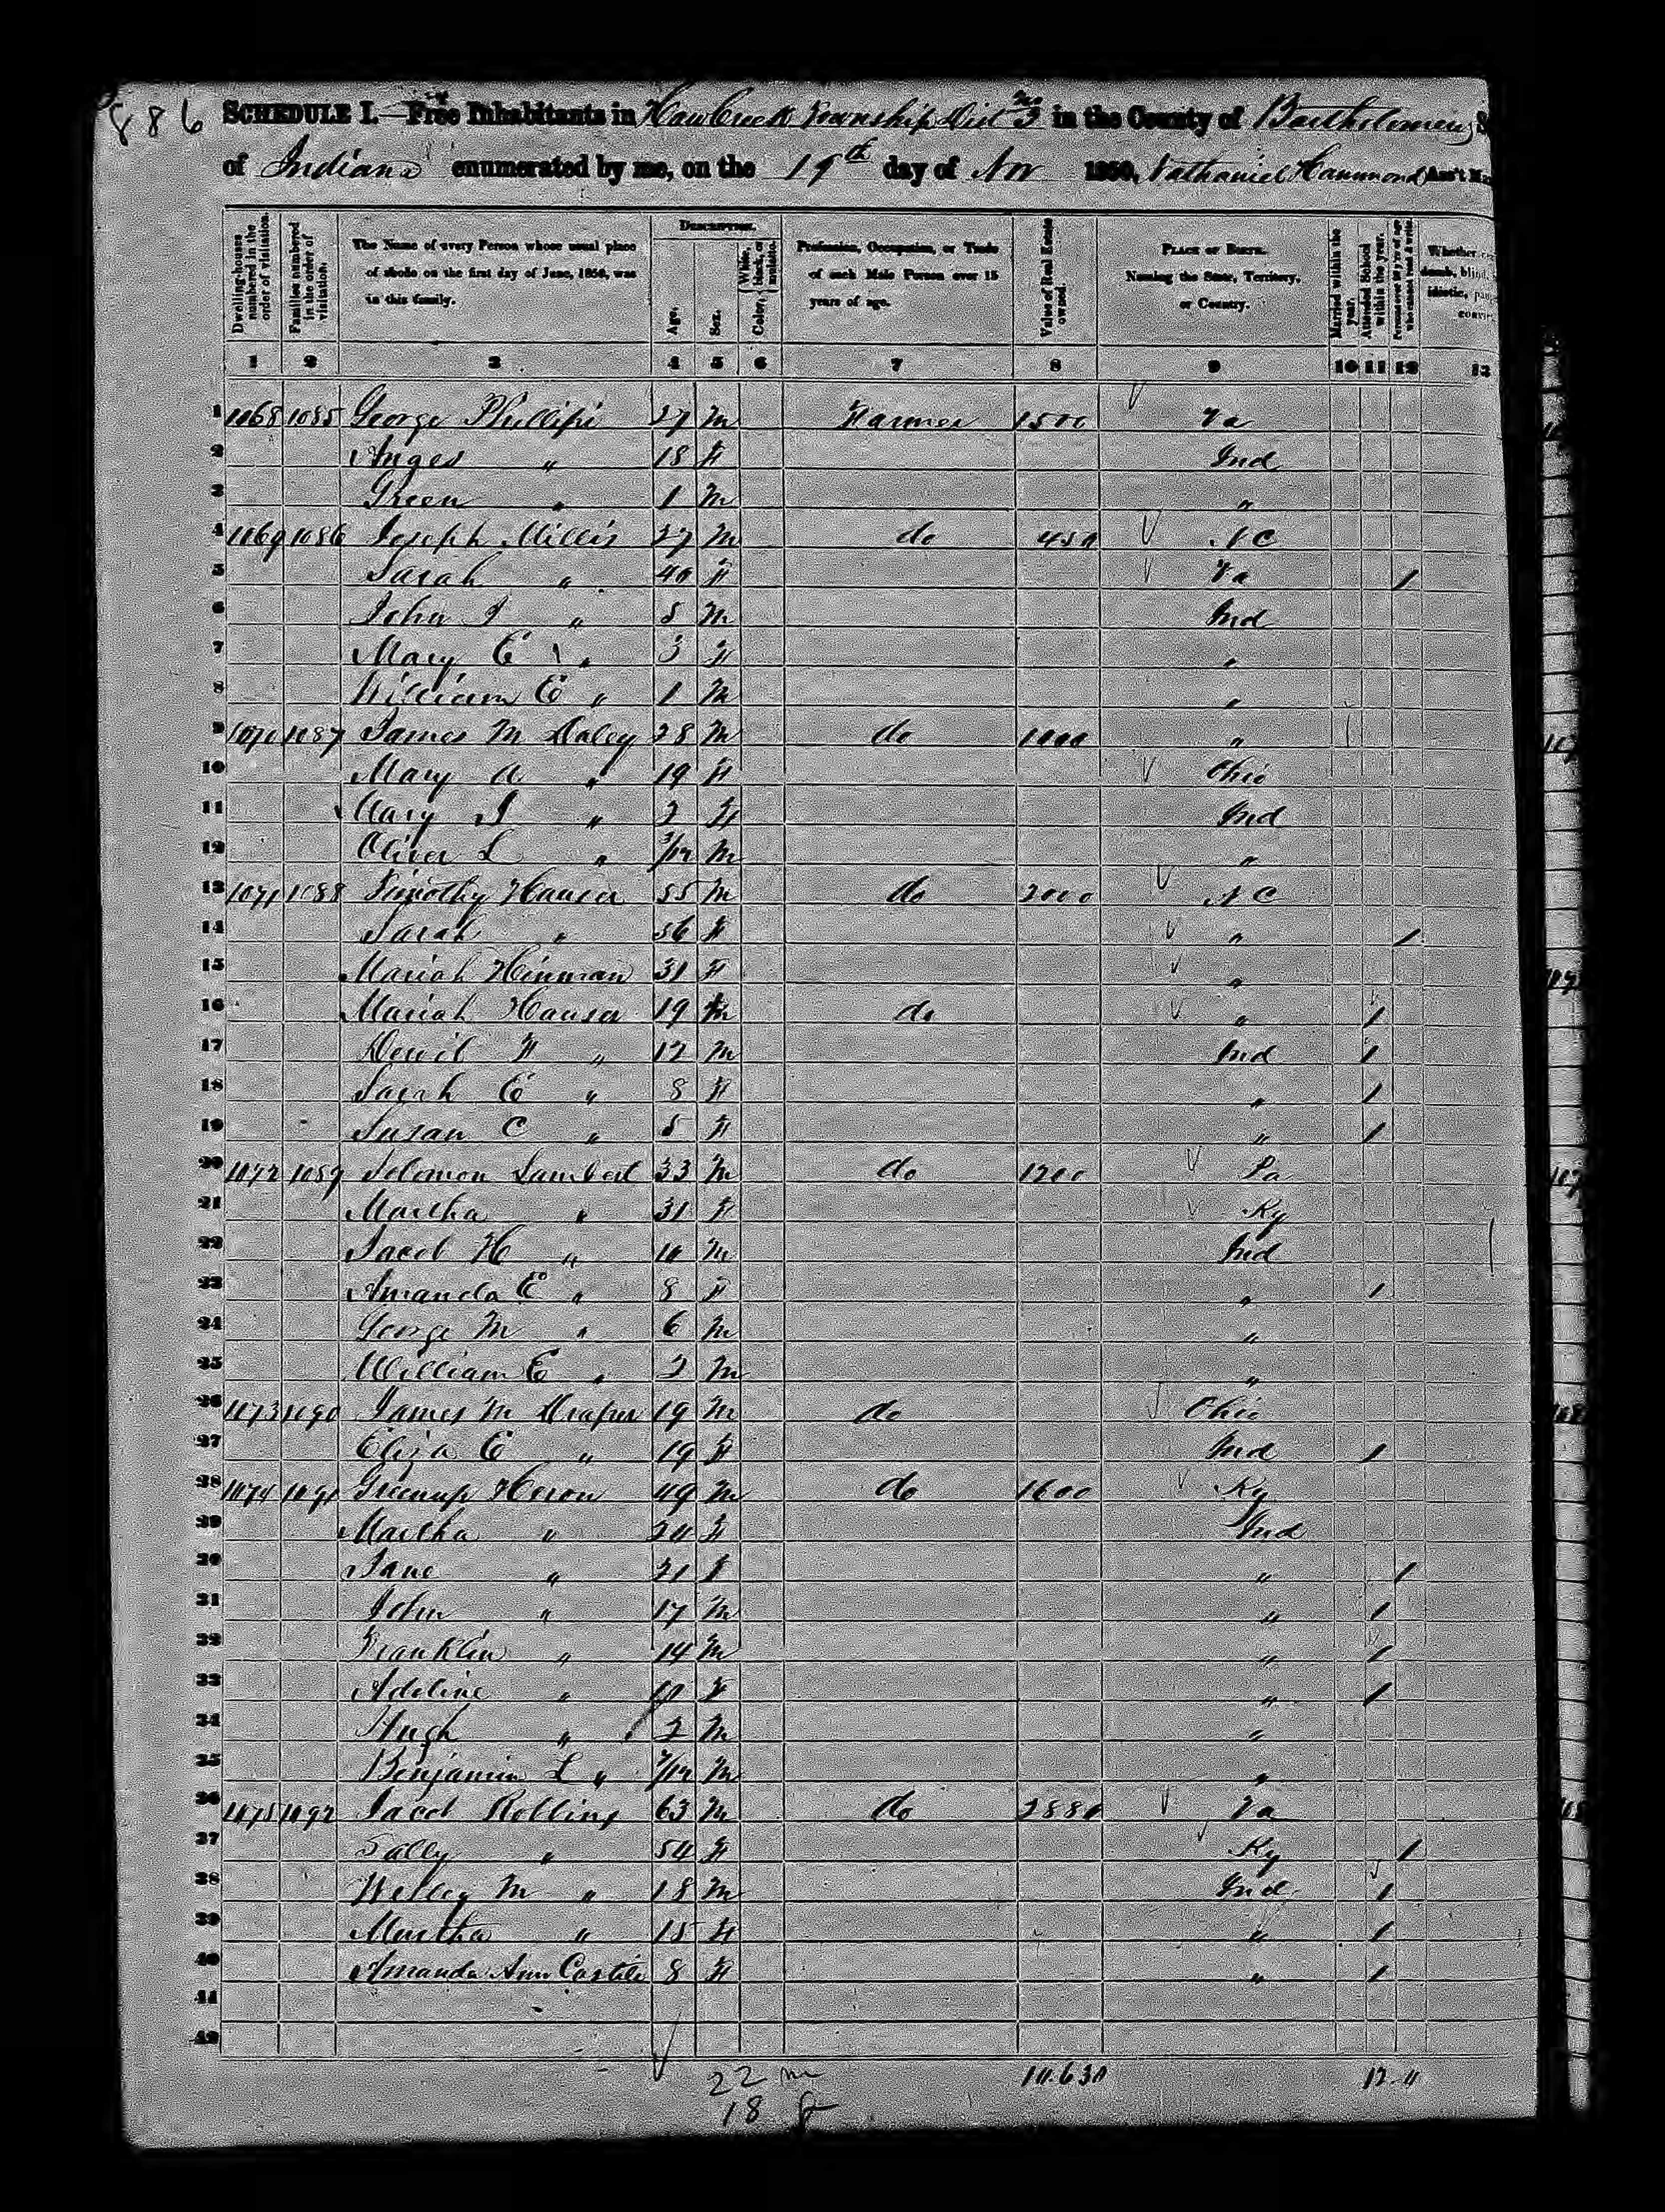 886
SCHEDULE I.—Free Inhabitants in Haw Creek Township Dist No 3 in the County of Bartholomew S
of Indiana enumerated by me, on the 19th day of Nov 1850. Nathaniel Hammond Ass't Ma
Dwelling-houses numbered in the order of visitation.
Families numbered in the order of visitation.
The Name of every Person whose usual place of abode on the first day of June, 1850, was in this family.
DESCRIPTION.
Age.
Sex.
Color, { White, black, or mulatto.
Profession, Occupation, or Trade of each Male Person over 15 years of age.
Value of Real Estate owned.
PLACE OF BIRTH. Naming the State, Territory, or Country.
Married within the year.
Attended School within the year.
Persons over 20 y'rs of age who cannot read & write.
Whether dumb, blind, idiotic,
1 2 3 4 5 6 7 8 9 10 11 12 13
1 1068 1085 George Phillipi 27 M Farmer 1500 Va
2 Anges " 18 F Ind
3 Green " 1 M "
4 1069 1086 Joseph Millis 27 M do 450 NC
5 Sarah " 40 F Va 1
6 John I " 5 M Ind
7 Mary E " 3 F "
8 William E " 1 M "
9 1070 1087 James M Daley 28 M do 1000 "
10 Mary A " 19 F Ohio
11 Mary I " 2 F Ind
12 Oliver L " 3/12 M "
13 1071 1088 Timothy Hauser 55 M do 2000 NC
14 Sarah " 56 F " 1
15 Mariah Hinman 31 F "
16 Mariah Hauser 19 M do " 1
17 Dewit F " 12 M Ind 1
18 Sarah E " 8 F " 1
19 Susan C " 5 F " 1
20 1072 1089 Solomon Lambert 33 M do 1200 Pa
21 Martha " 31 F Ky
22 Jacob H " 10 M Ind
23 Amanda E " 8 F " 1
24 George M " 6 M "
25 William E " 2 M "
26 1073 1090 James M Draper 19 M do Ohio
27 Eliza E " 19 F Ind 1
28 1074 1091 Greenup Heron 49 M do 1600 Ky
29 Martha " 24 F Ind
30 Jane " 21 F " 1
31 John " 17 M " 1
32 Franklin " 14 M " 1
33 Adeline " F " 1
34 Hugh " 2 M "
35 Benjamin L " 7/12 M "
36 1075 1092 Jacob Rollins 63 M do 2880 Va
37 Sally " 54 F Ky 1
38 Wesley M " 18 M Ind 1
39 Martha " 15 F " 1
40 Amanda Ann Castile 8 F " 1
41
42
22 m 10.630 12
18 f